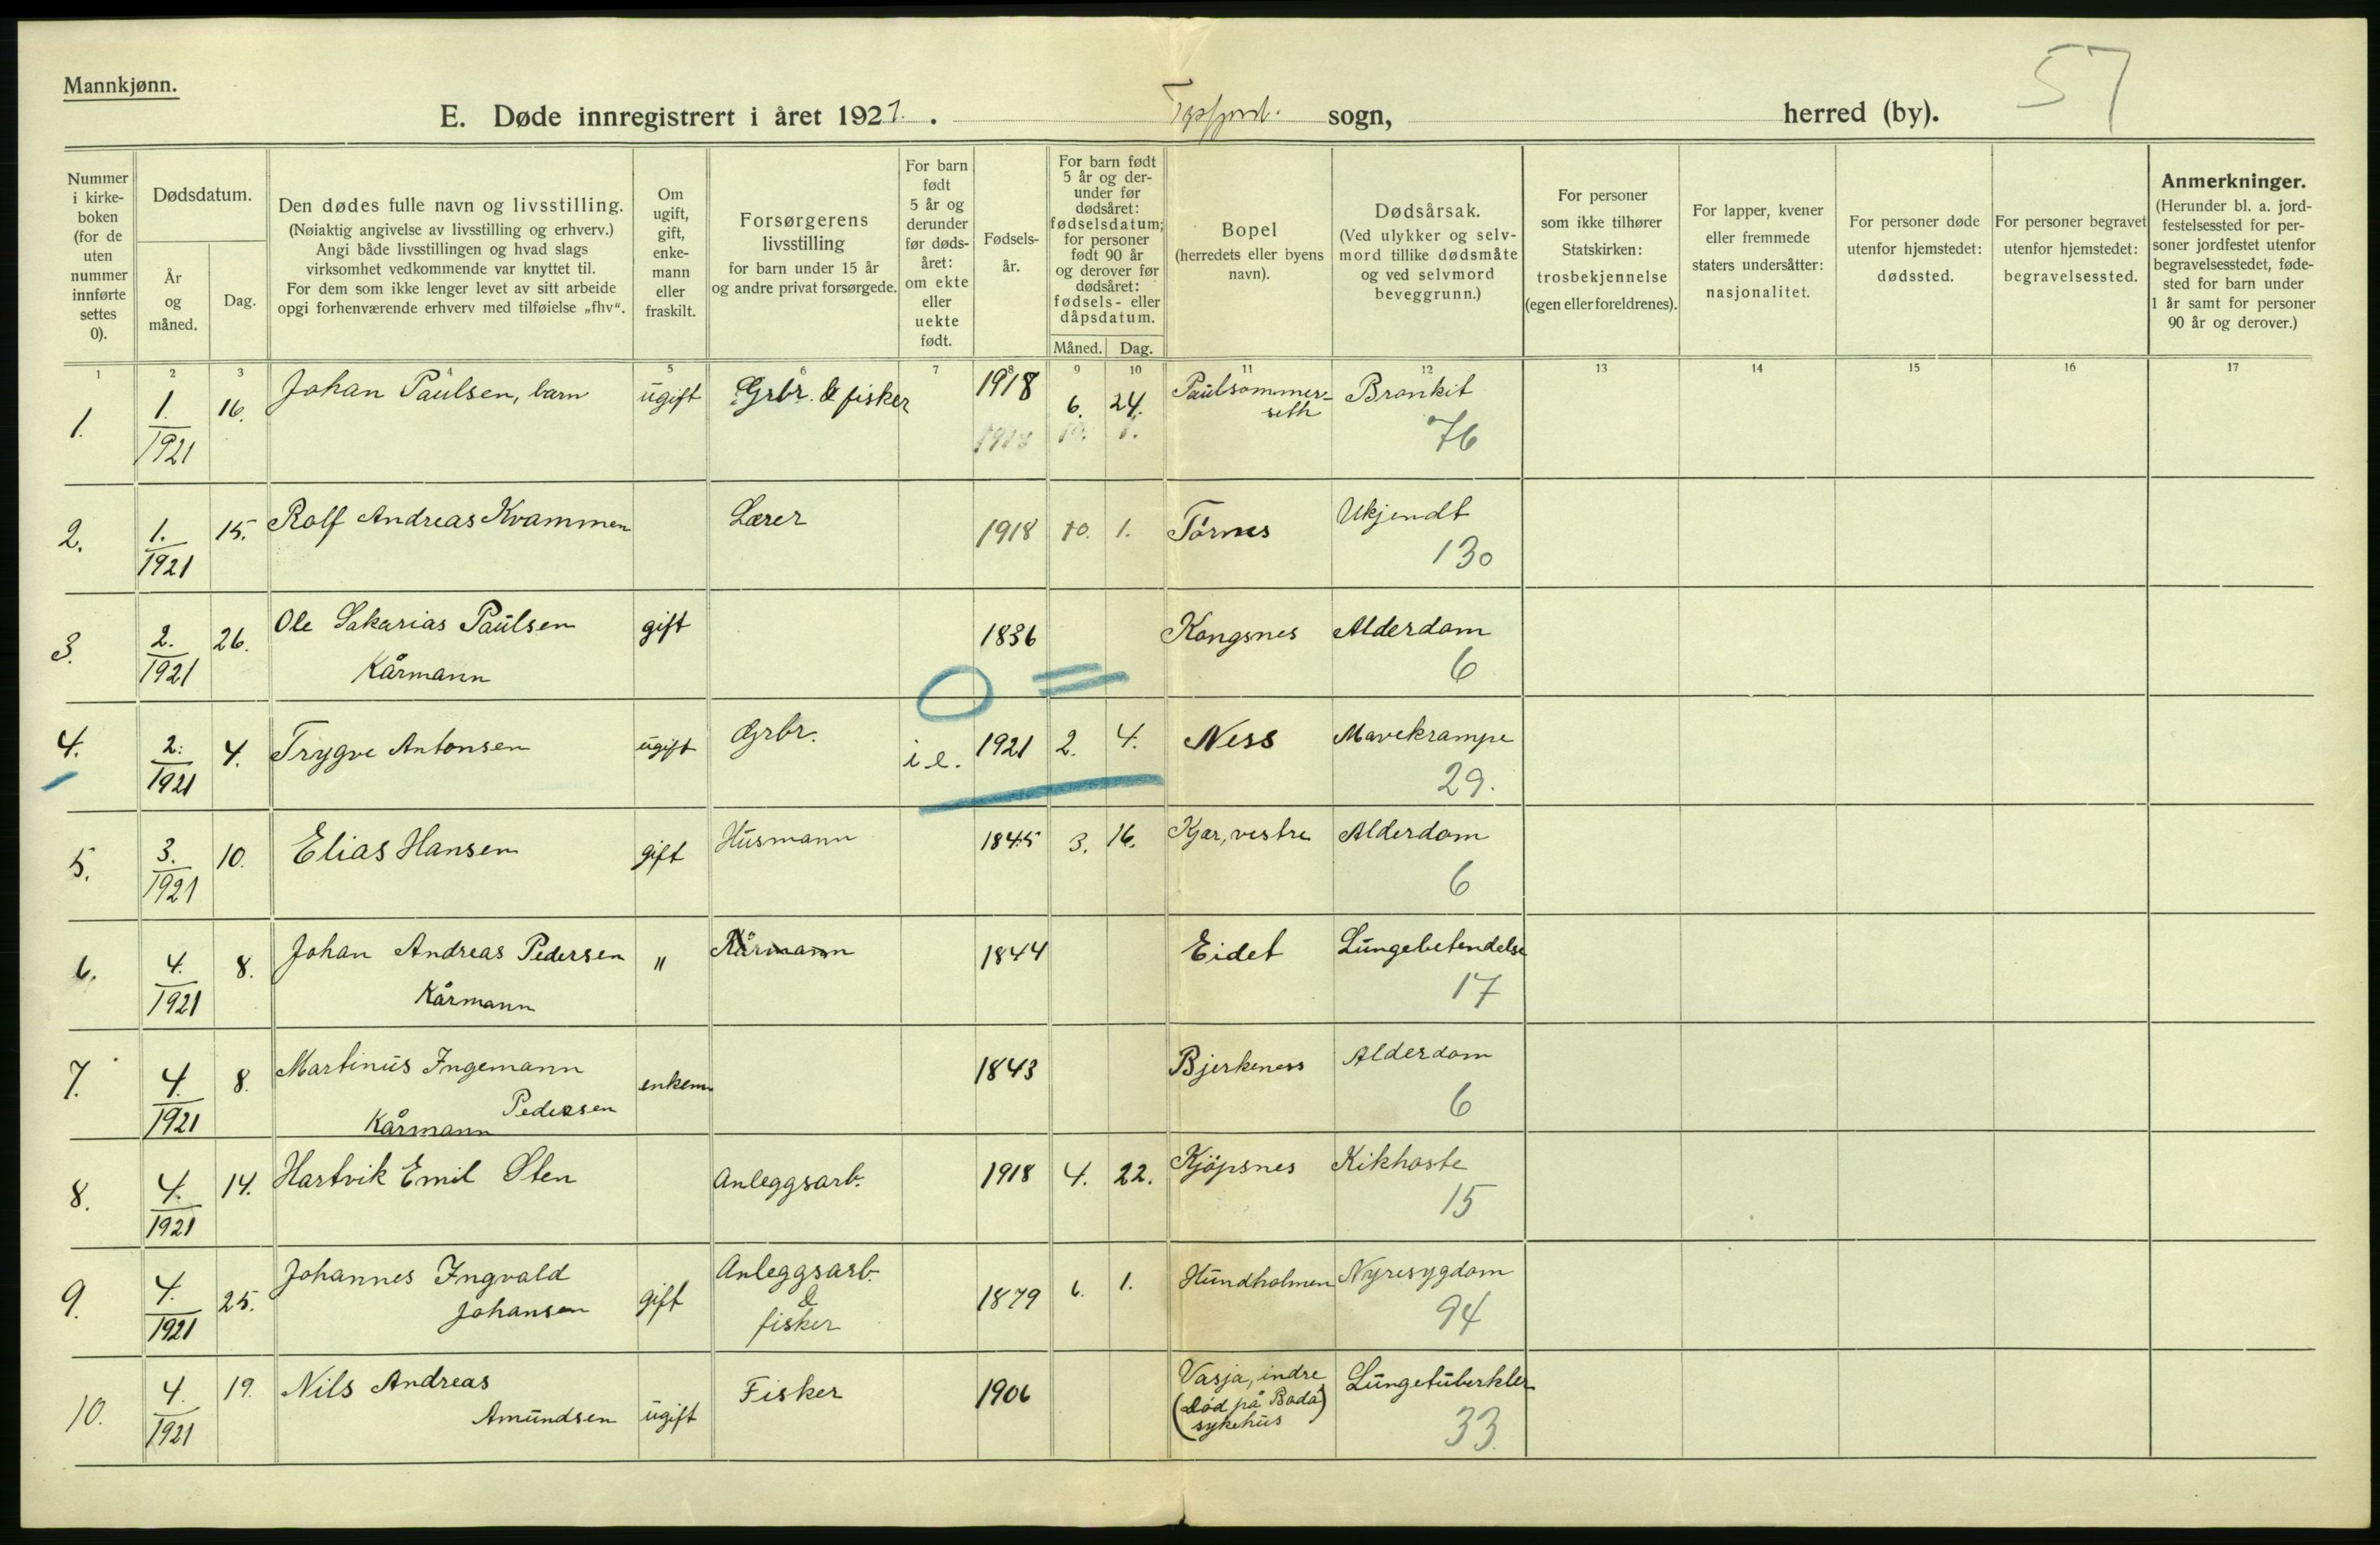 Mannkjønn.
E. Døde innregistrert i året 1921. sogn, herred (by).
57
Nummer i kirke- boken (for de uten nummer innførte settes 0).
Dødsdatum.
År og måned.
Dag.
Den dødes fulle navn og livsstilling.
(Nøiaktig angivelse av livsstilling og erhverv.)
Angi både livsstillingen og hvad slags
virksomhet vedkommende var knyttet til.
For dem som ikke lenger levet av sitt arbeide
opgi forhenværende erhverv med tilføielse „fhv“.
Om ugift, gift, enke- mann eller fraskilt.
Forsørgerens
livsstilling
for barn under 15 år
og andre privat forsørgede.
For barn født 5 år og derunder før døds- året: om ekte eller uekte født.
Fødsels- år.
For barn født 5 år og der- under før dødsåret: fødselsdatum; for personer født 90 år og derover før dødsåret: fødsels- eller dåpsdatum.
Måned. Dag.
Bopel
(herredets eller byens
navn).
Dødsårsak.
(Ved ulykker og selv-
mord tillike dødsmåte
og ved selvmord
beveggrunn.)
For personer
som ikke tilhører
Statskirken:
trosbekjennelse
(egen eller foreldrenes).
For lapper, kvener
eller fremmede
staters undersåtter:
nasjonalitet.
For personer døde
utenfor hjemstedet:
dødssted.
For personer begravet
utenfor hjemstedet:
begravelsessted.
Anmerkninger.
(Herunder bl. a. jord-
festelsessted for per-
soner jordfestet utenfor
begravelsesstedet, føde-
sted for barn under
1 år samt for personer
90 år og derover.)
1 2 3 4 5 6 7 8 9 10 11 12 13 14 15 16 17
1. 1./1921 16. Johan Paulsen, barn ugift Grbr. & fisker 1918 6. 24. Paulsommer- seth Bronkit
1918 10. 1. 76
2. 1./1921 15. Rolf Andreas Kvammen Lærer 1918 10. 1. Tórnes Ukjendt
130
3. 2./1921 26. Ole Sakarias Paulsen gift 1836 Kongsnes Alderdom
Kårmann 6
4. 2./1921 4. Trygve Antonsen ugift Grbr. i e. 1921 2. 4. Ness Mavekrampe
29.
5. 3./1921 10. Elias Hansen gift Husmann 1845 3. 16. Kjær, vestre Alderdom
6
6. 4./1921 8. Johan Andreas Pedersen " Kårmann 1844 Eidet Lungebetendelse
Kårmann 17
7. 4./1921 8. Martinus Ingemann enkem 1843 Bjerkeness Alderdom
Pedersen
Kårmann 6
8. 4./1921 14. Hartvik Emil Sten Anleggsarb. 1918 4. 22. Kjöpsnes Kikhoste
15
9. 4./1921 25. Johannes Ingvald Johansen gift Anleggsarb. & fisker 1879 6. 1. Hundholmen Nyresygdom
94
10. 4./1921 19. Nils Andreas Amundsen ugift Fisker 1906 Vasja, indre Lungetuberkler
(död på Bodö sykehus) 33.